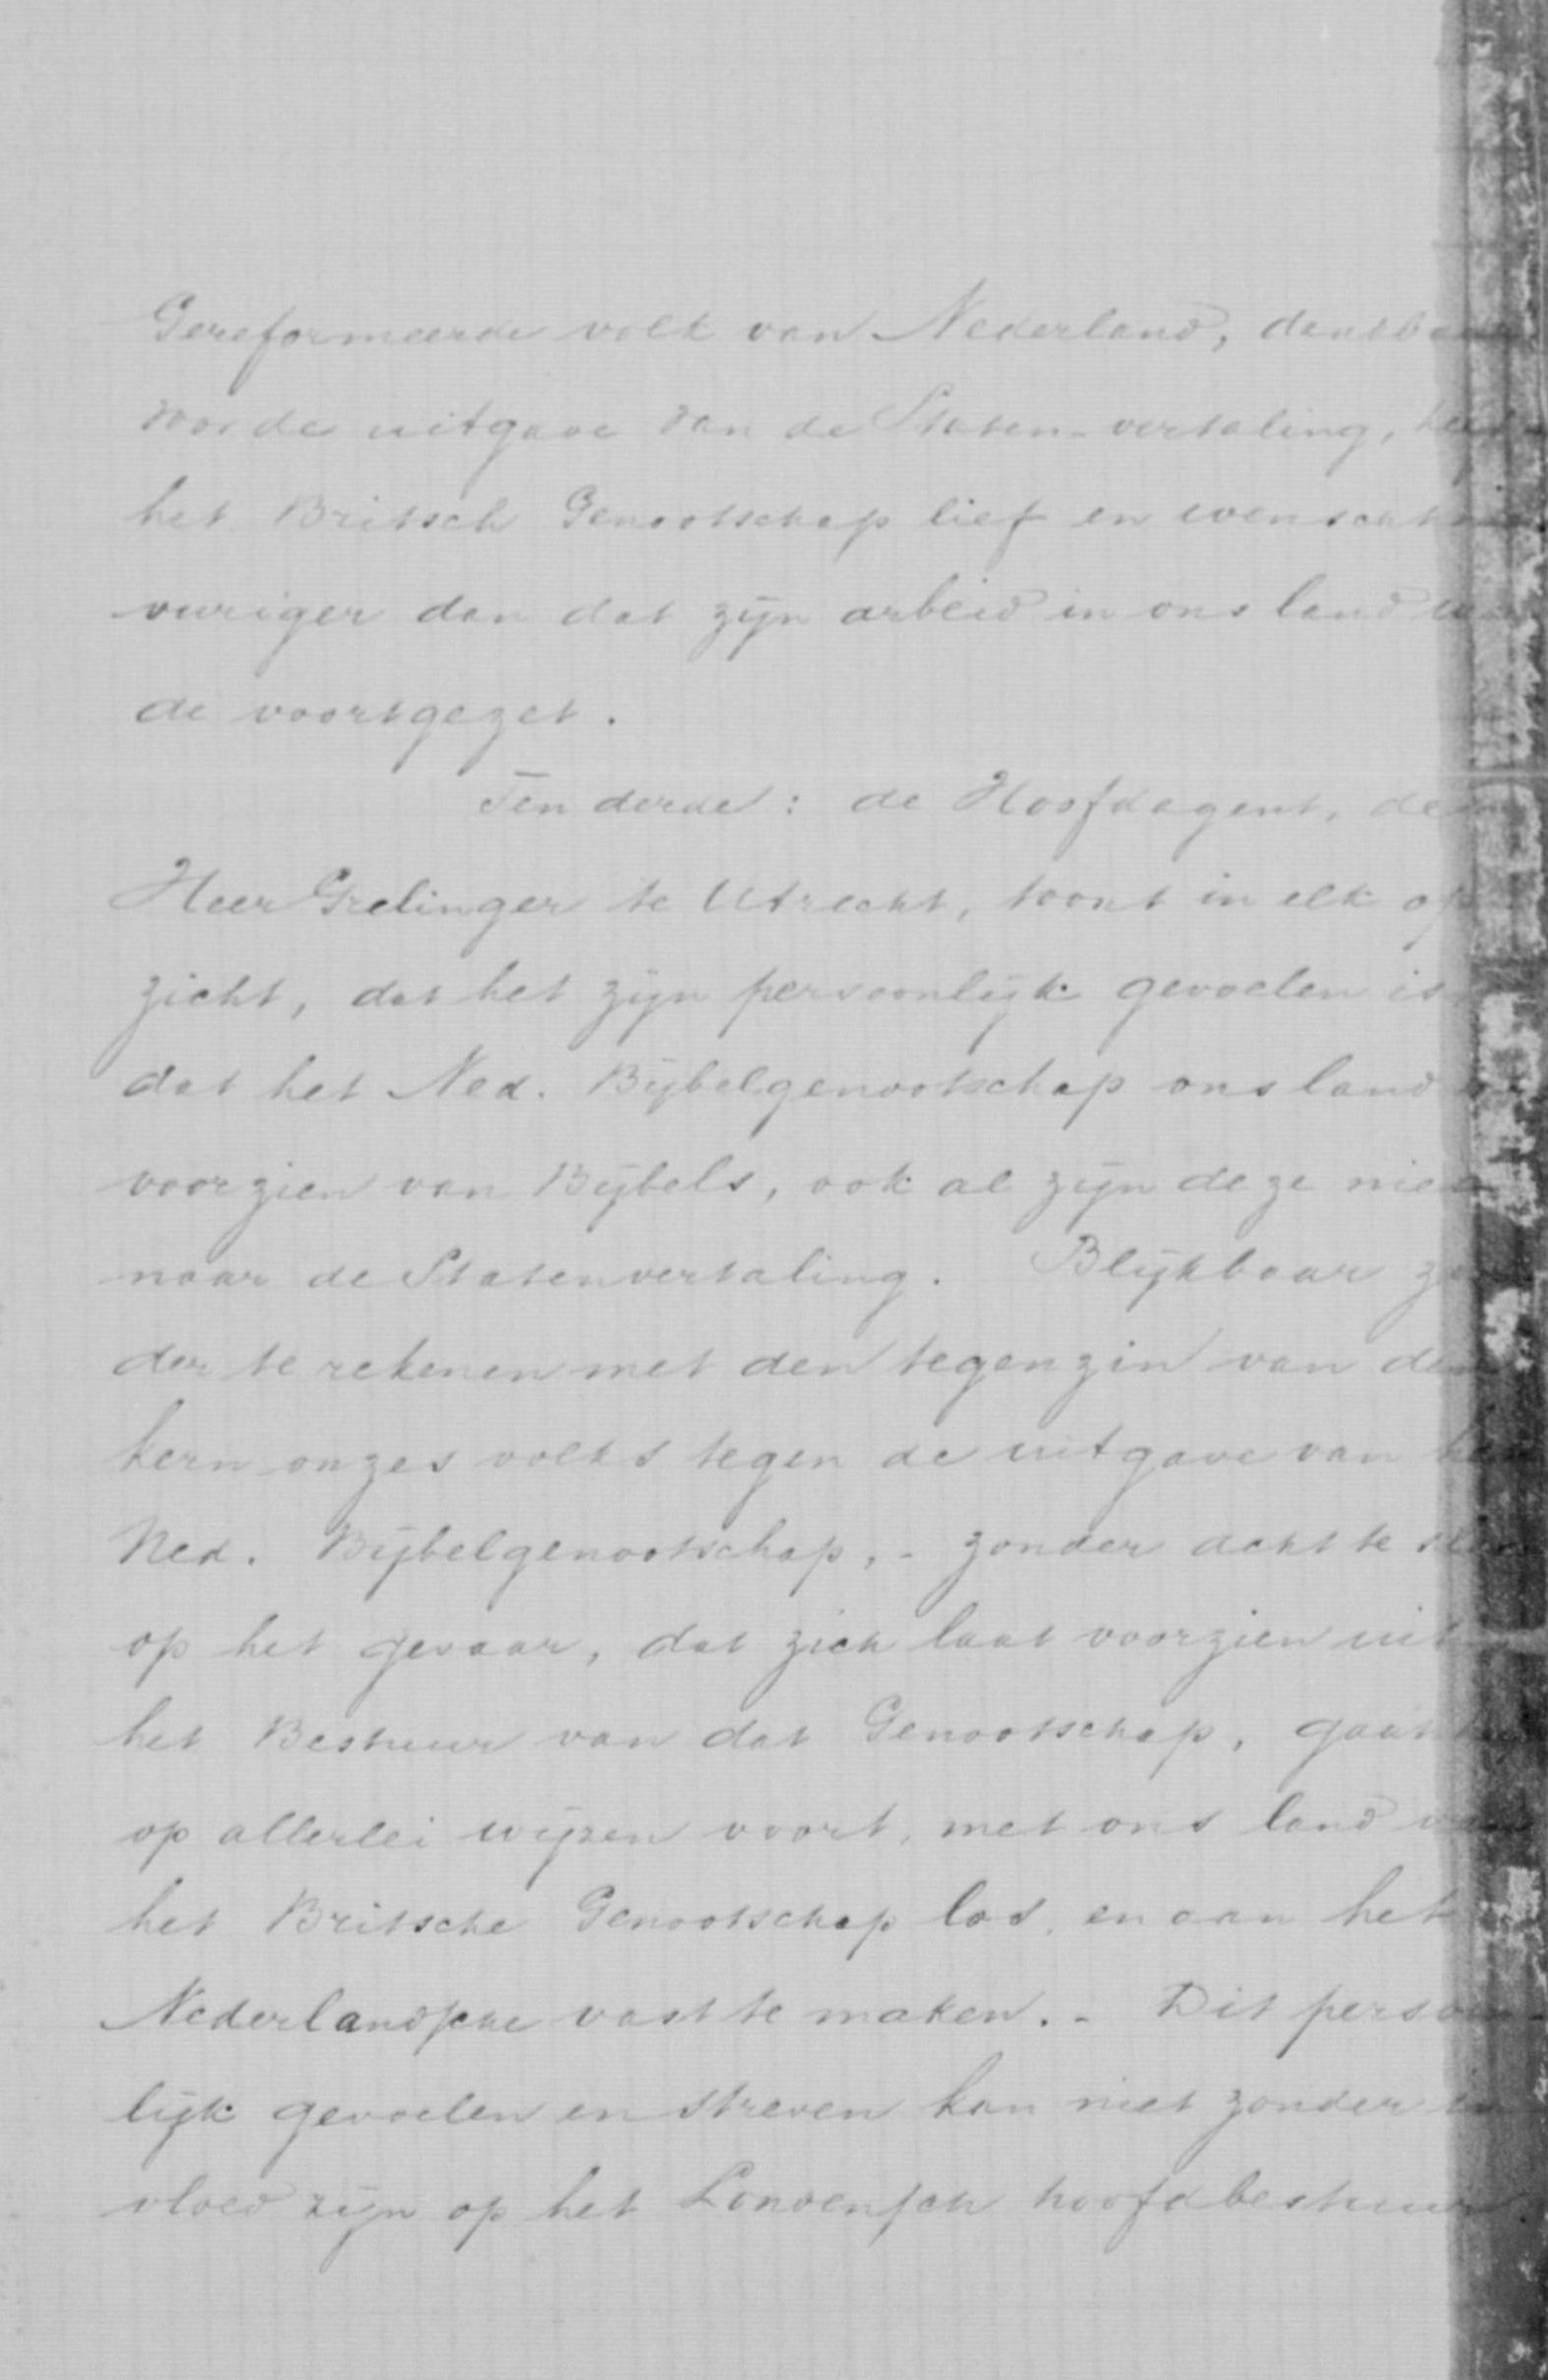 Gereformeerde volk van Nederland, dankbaar
voor de uitgave van de Staten-vertaling, heeft
het Britsch Genootschap lief en wenscht
vuriger dan dat zijn arbeid in ons land
de voortgezet.
Ten derde: de Hoofdagent, de
Heer Grelinger te Utrecht, toont in elk op
zicht, dat het zijn persoonlijk gevoelen is
dat het Ned. Bijbelgenootschap ons land
voorzien van Bijbels, ook al zijn deze niet
naar de Statenvertaling. Blijkbaar zon
der te rekenen met den tegenzin van den
kern onzes volks tegen de uitgave van het
Ned. Bijbelgenootschap, - zonder acht te
op het gevaar, dat zich laat voorzien uit
het Bestuur van dat Genootschap, gaat
op allerlei wijzen voort, met ons land van
het Britsche Genootschap los, en aan het
Nederlandsche vast te maken. - Dit persoon-
lijk gevoelen en streven kan niet zonder in
vloed zijn op het Londensch hoofdbestuur